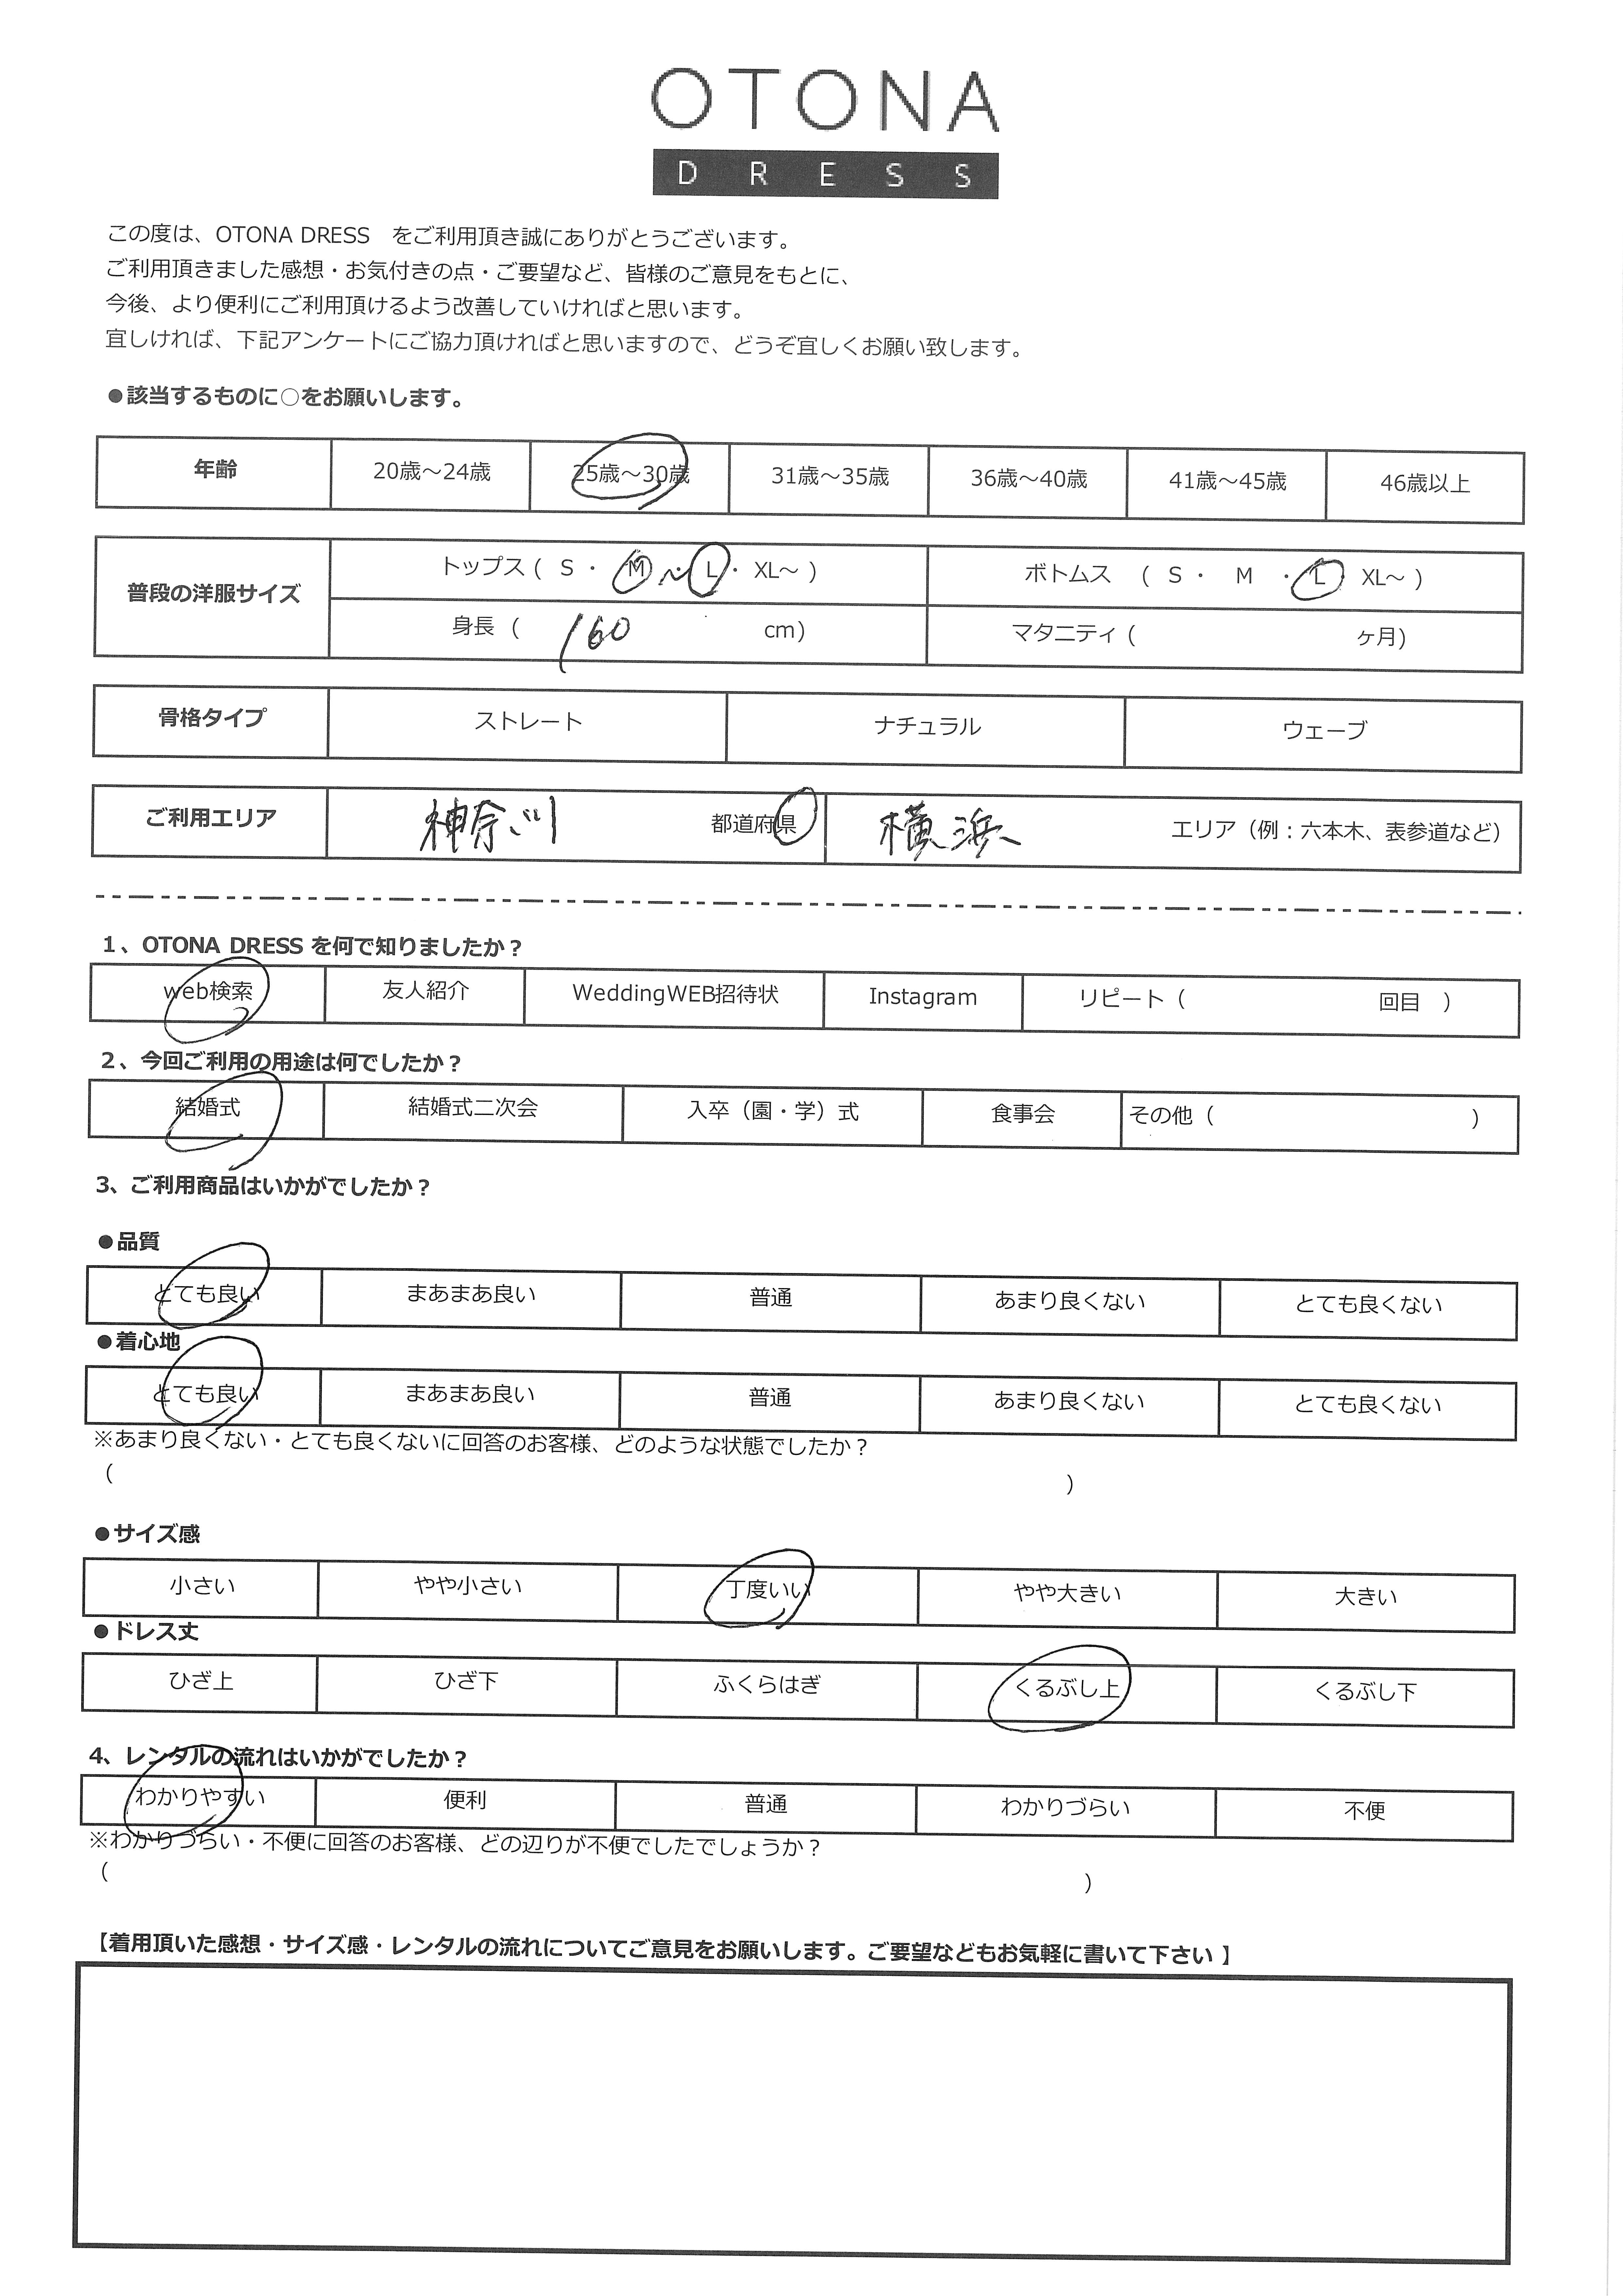 OTONA
DRESS
この度は、OTONA DRESS　をご利用頂き誠にありがとうございます。
ご利用頂きました感想・お気付きの点・ご要望など、皆様のご意見をもとに、
今後、より便利にご利用頂けるよう改善していければと思います。
宜しければ、下記アンケートにご協力頂ければと思いますので、どうぞ宜しくお願い致します。
●該当するものに○をお願いします。
年齢 20歳～24歳 25歳～30歳 31歳～35歳 36歳～40歳 41歳～45歳 46歳以上
普段の洋服サイズ トップス ( S ・ M ～ L ・ XL～ ) ボトムス ( S ・ M ・ L ・ XL～ )
身長 ( 160 cm) マタニティ ( ヶ月)
骨格タイプ ストレート ナチュラル ウェーブ
ご利用エリア 神奈川 都道府県 横浜 エリア（例：六本木、表参道など）
1、OTONA DRESS を何で知りましたか？
web検索 友人紹介 WeddingWEB招待状 Instagram リピート（ 回目 ）
2、今回ご利用の用途は何でしたか？
結婚式 結婚式二次会 入卒（園・学）式 食事会 その他（ ）
3、ご利用商品はいかがでしたか？
●品質
とても良い まあまあ良い 普通 あまり良くない とても良くない
●着心地
とても良い まあまあ良い 普通 あまり良くない とても良くない
※あまり良くない・とても良くないに回答のお客様、どのような状態でしたか？
（ ）
●サイズ感
小さい やや小さい 丁度いい やや大きい 大きい
●ドレス丈
ひざ上 ひざ下 ふくらはぎ くるぶし上 くるぶし下
4、レンタルの流れはいかがでしたか？
わかりやすい 便利 普通 わかりづらい 不便
※わかりづらい・不便に回答のお客様、どの辺りが不便でしたでしょうか？
（ ）
【着用頂いた感想・サイズ感・レンタルの流れについてご意見をお願いします。ご要望などもお気軽に書いて下さい 】